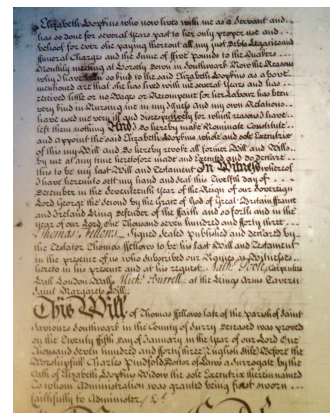 Elizabeth Hopkins who now lives with me as a Servant and
has so done for several Years past to her only proper use and
behoof for ever she paying thereout all my just Debts Legacies and
funeral Charges and the Sume of five pounds to the Quakers
Monthly meeting at Horsly Down in Southwark Now the Reasons
why I have been so kind to the said Elizabeth Hopkins as above
mentioned are that she has lived with me several Years and has
received little or no Wages or Recompence for her Labour has been
very kind in Nursing me in my Illness and my own Relations
have used me very ill and disrespectfully for which reasons I have
left them nothing And I do hereby make Nominate Constitute
and appoint the said Elizabeth Hopkins whole and sole Executrix
of this my Will and Do hereby revoke all former Will and Wills
by me at any time heretofore made and Executed and do declare
this to be my last Will and Testament In Witness whereof
I have hereunto sett my hand and seal this Twelfth day of
December in the Seventeenth Year of the Reign of our Sovereign
Lord George the Second by the Grace of God of Great Britain ffrance
and Ireland King defender of the ffaith and so forth and in the
year of our Lord One thousand seven hundred and fforty three
Thomas ffellows Signed Sealed published and declared by
the Testator Thomas ffellows to be his last Will and Testament
in the presence of us who subscribed our Names as Witnesses
hereto in his presence and at his request Carpenter
London Walls Mich: Burrell at the Kings Arms Tavern
Saint Margarets Hill
This Will of Thomas ffellows late of the parish of Saint
Saviours Southwark in the County of Surry Deceased was proved
on the Twenty fifth day of January in the Year of our Lord One
Thousand seven hundred and fforty three (English Stile) Before the
Worshipfull Charles Pinfold Doctor of Laws a Surrogate by the
Oath of Elizabeth Hopkins Widow the sole Executrix therein named
To whom Administration was granted being first sworn
faithfully to Administer